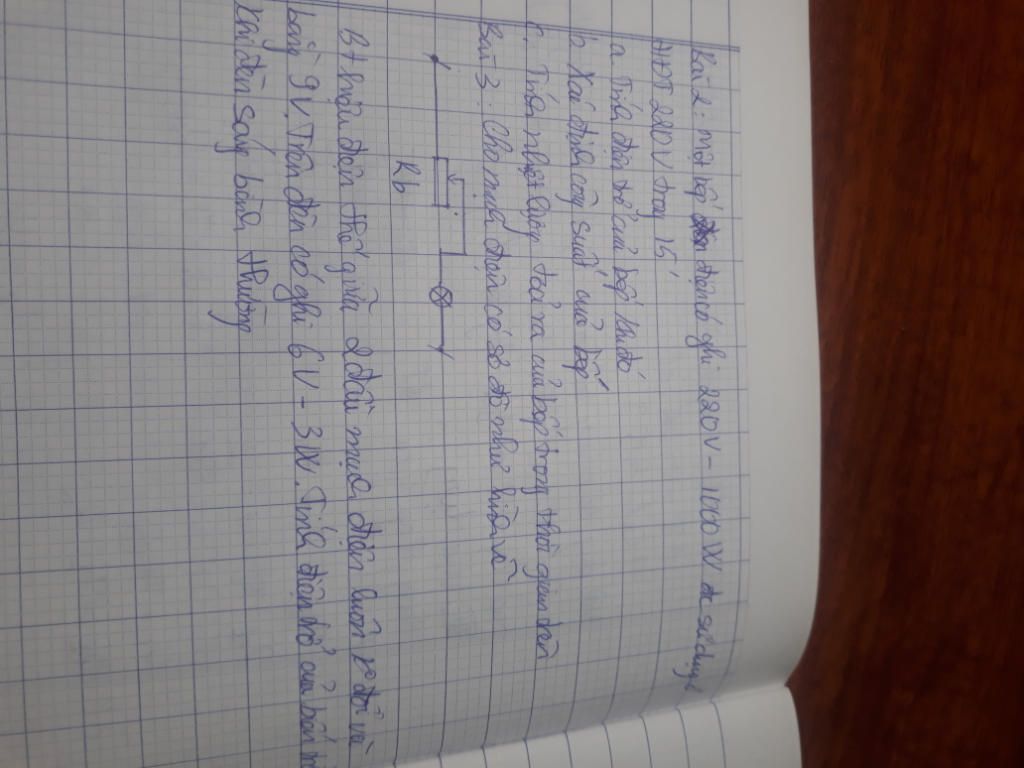 Bài 2: Một bếp điện có ghi 220V - 1100W đc sử dụng
HĐT 220V trog 15'
a Tính điện trở của bếp khi đó
b Xác định công suất của bếp
c. Tính nhiệt lượng toả ra của bếp trong thời gian trên
Bài 3: Cho mạch điện có sơ đồ như hình vẽ
Rb
Hiệu điện thế giữa 2 đầu mạch điện luôn k đổi và
bằng 9V. Trên đèn có ghi 6V - 3W. Tính điện trở của biến
khi đèn sáng bình thường